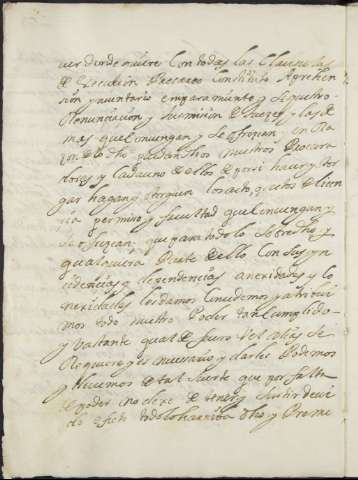 ver donde oviere Con todas las Clausulas
de execucion Precario Constituto Aprehen
sion ynventario emparamiento y sequestro
Renunciacion y sumision de Juezes y las de
mas que Convengan y se ofrezcan y en Ra
zon de lo dho puedan dhos nuestros Procura
dores y Cada uno de ellos de por si hacer y otor
gar hagan y otorguen los actos, autos de licen
cia permiso y facultad que Convengan y
se ofrezcan que para todo lo sobredho y
qualquiera Parte de ello Con sus yn
cidencias y dependencias anexidades y Co
nexidades les damos Concedemos y atribui
mos todo nuestro Poder tan Cumplido
y bastante qual de fuero vel alias se
Requiere y es necessario y darles Podemos
y devemos de tal suerte que por falta
de poder no dexe de tener y surtir devi
do efecto todo lo harriba dho y Prome